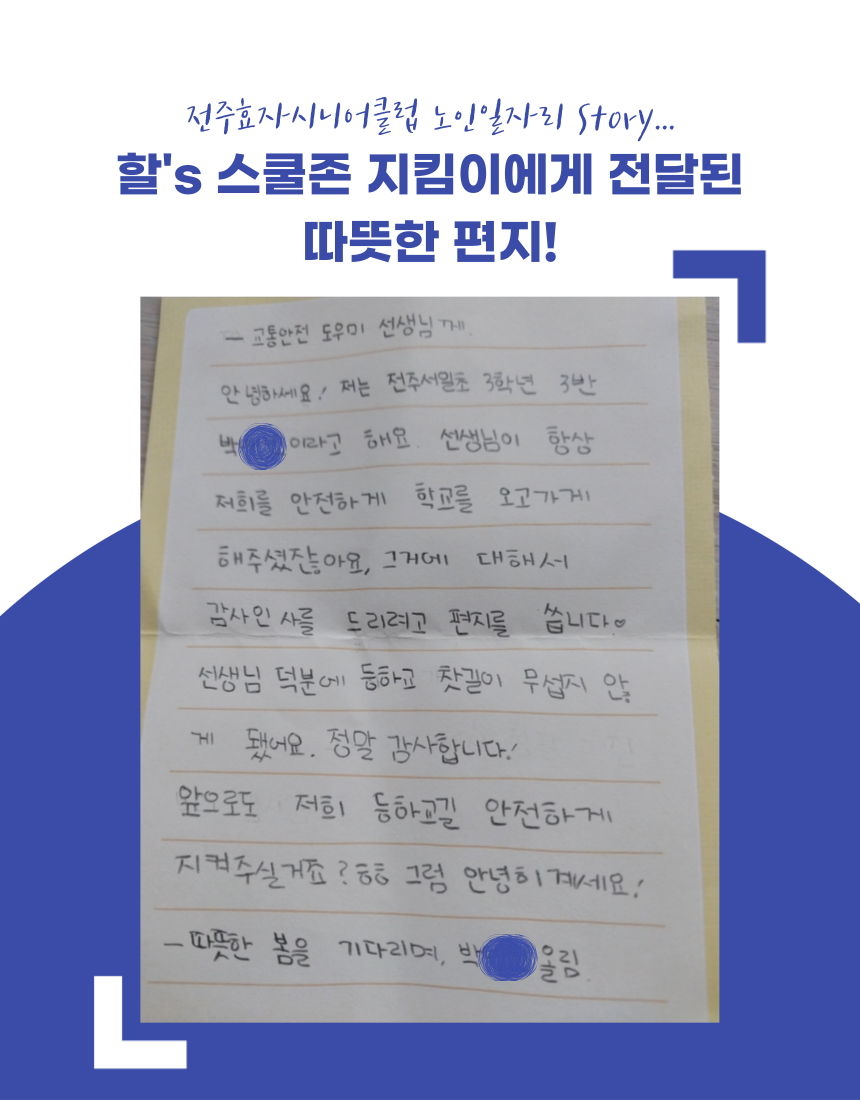 전주효자시니어클럽 노인일자리 Story...
할's 스쿨존 지킴이에게 전달된
따뜻한 편지!
- 교통안전 도우미 선생님께.
안녕하세요! 저는 전주서원초 3학년 3반
박 이라고 해요. 선생님이 항상
저희를 안전하게 학교를 오고가게
해주셨잖아요, 그거에 대해서
감사인사를 드리려고 편지를 씁니다♡
선생님 덕분에 등하교 찻길이 무섭지 않
게 됐어요. 정말 감사합니다!
앞으로도 저희 등하교길 안전하게
지켜주실거죠? ㅎㅎ 그럼 안녕히계세요!
- 따뜻한 봄을 기다리며, 박 올림.